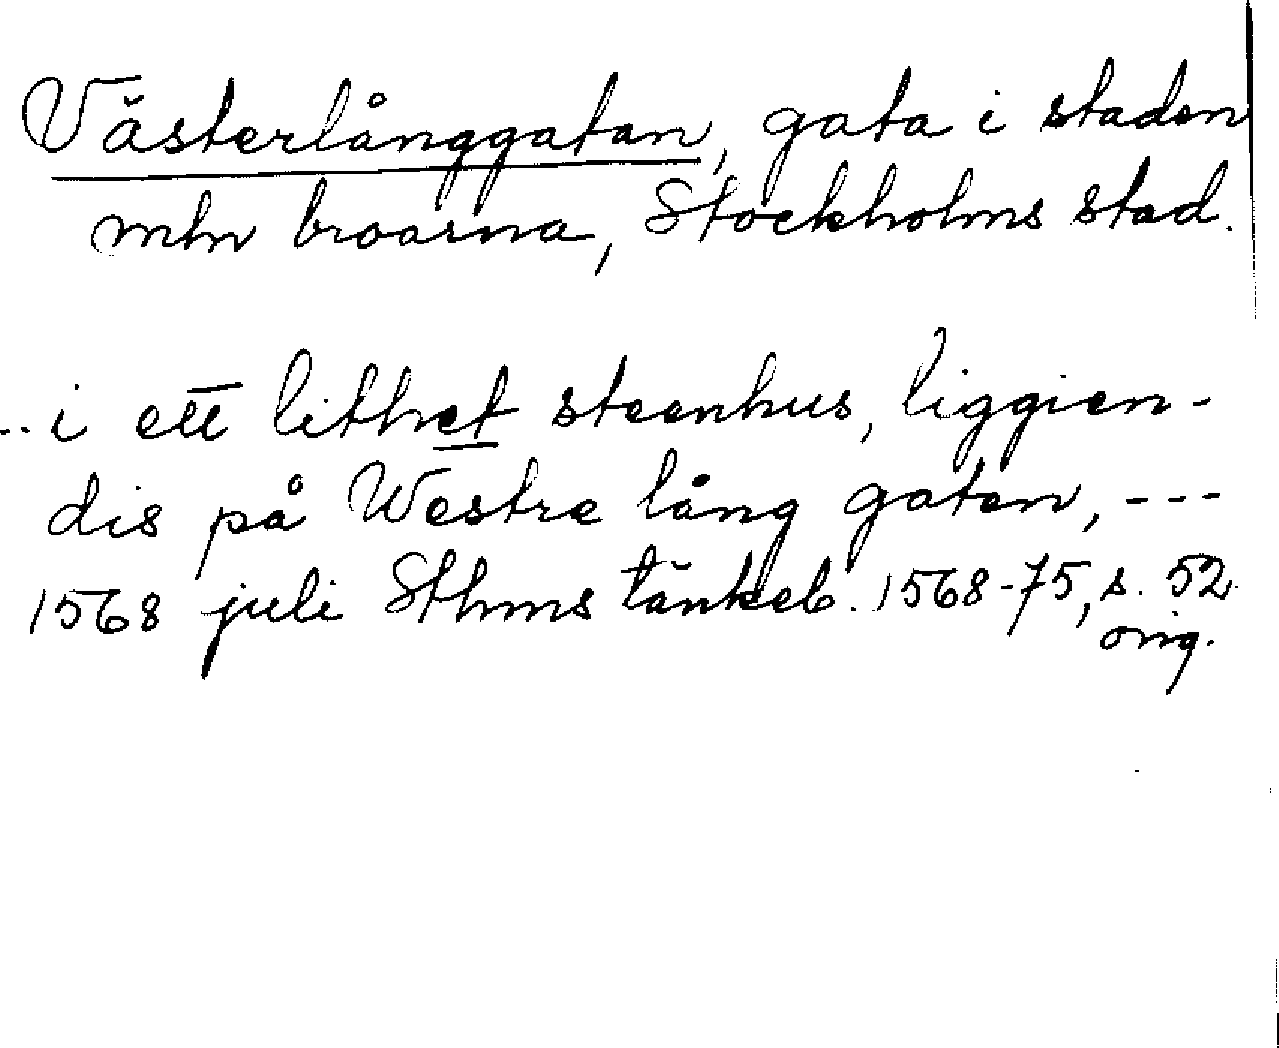 Västerlånggatan, gata i staden
mln broarna, Stockholms stad.
.. i ett lithet steenhus, liggien-
dis på Westre lång gaten, ---
1568 juli Sthms tänkeb. 1568-75, s. 52.
orig.